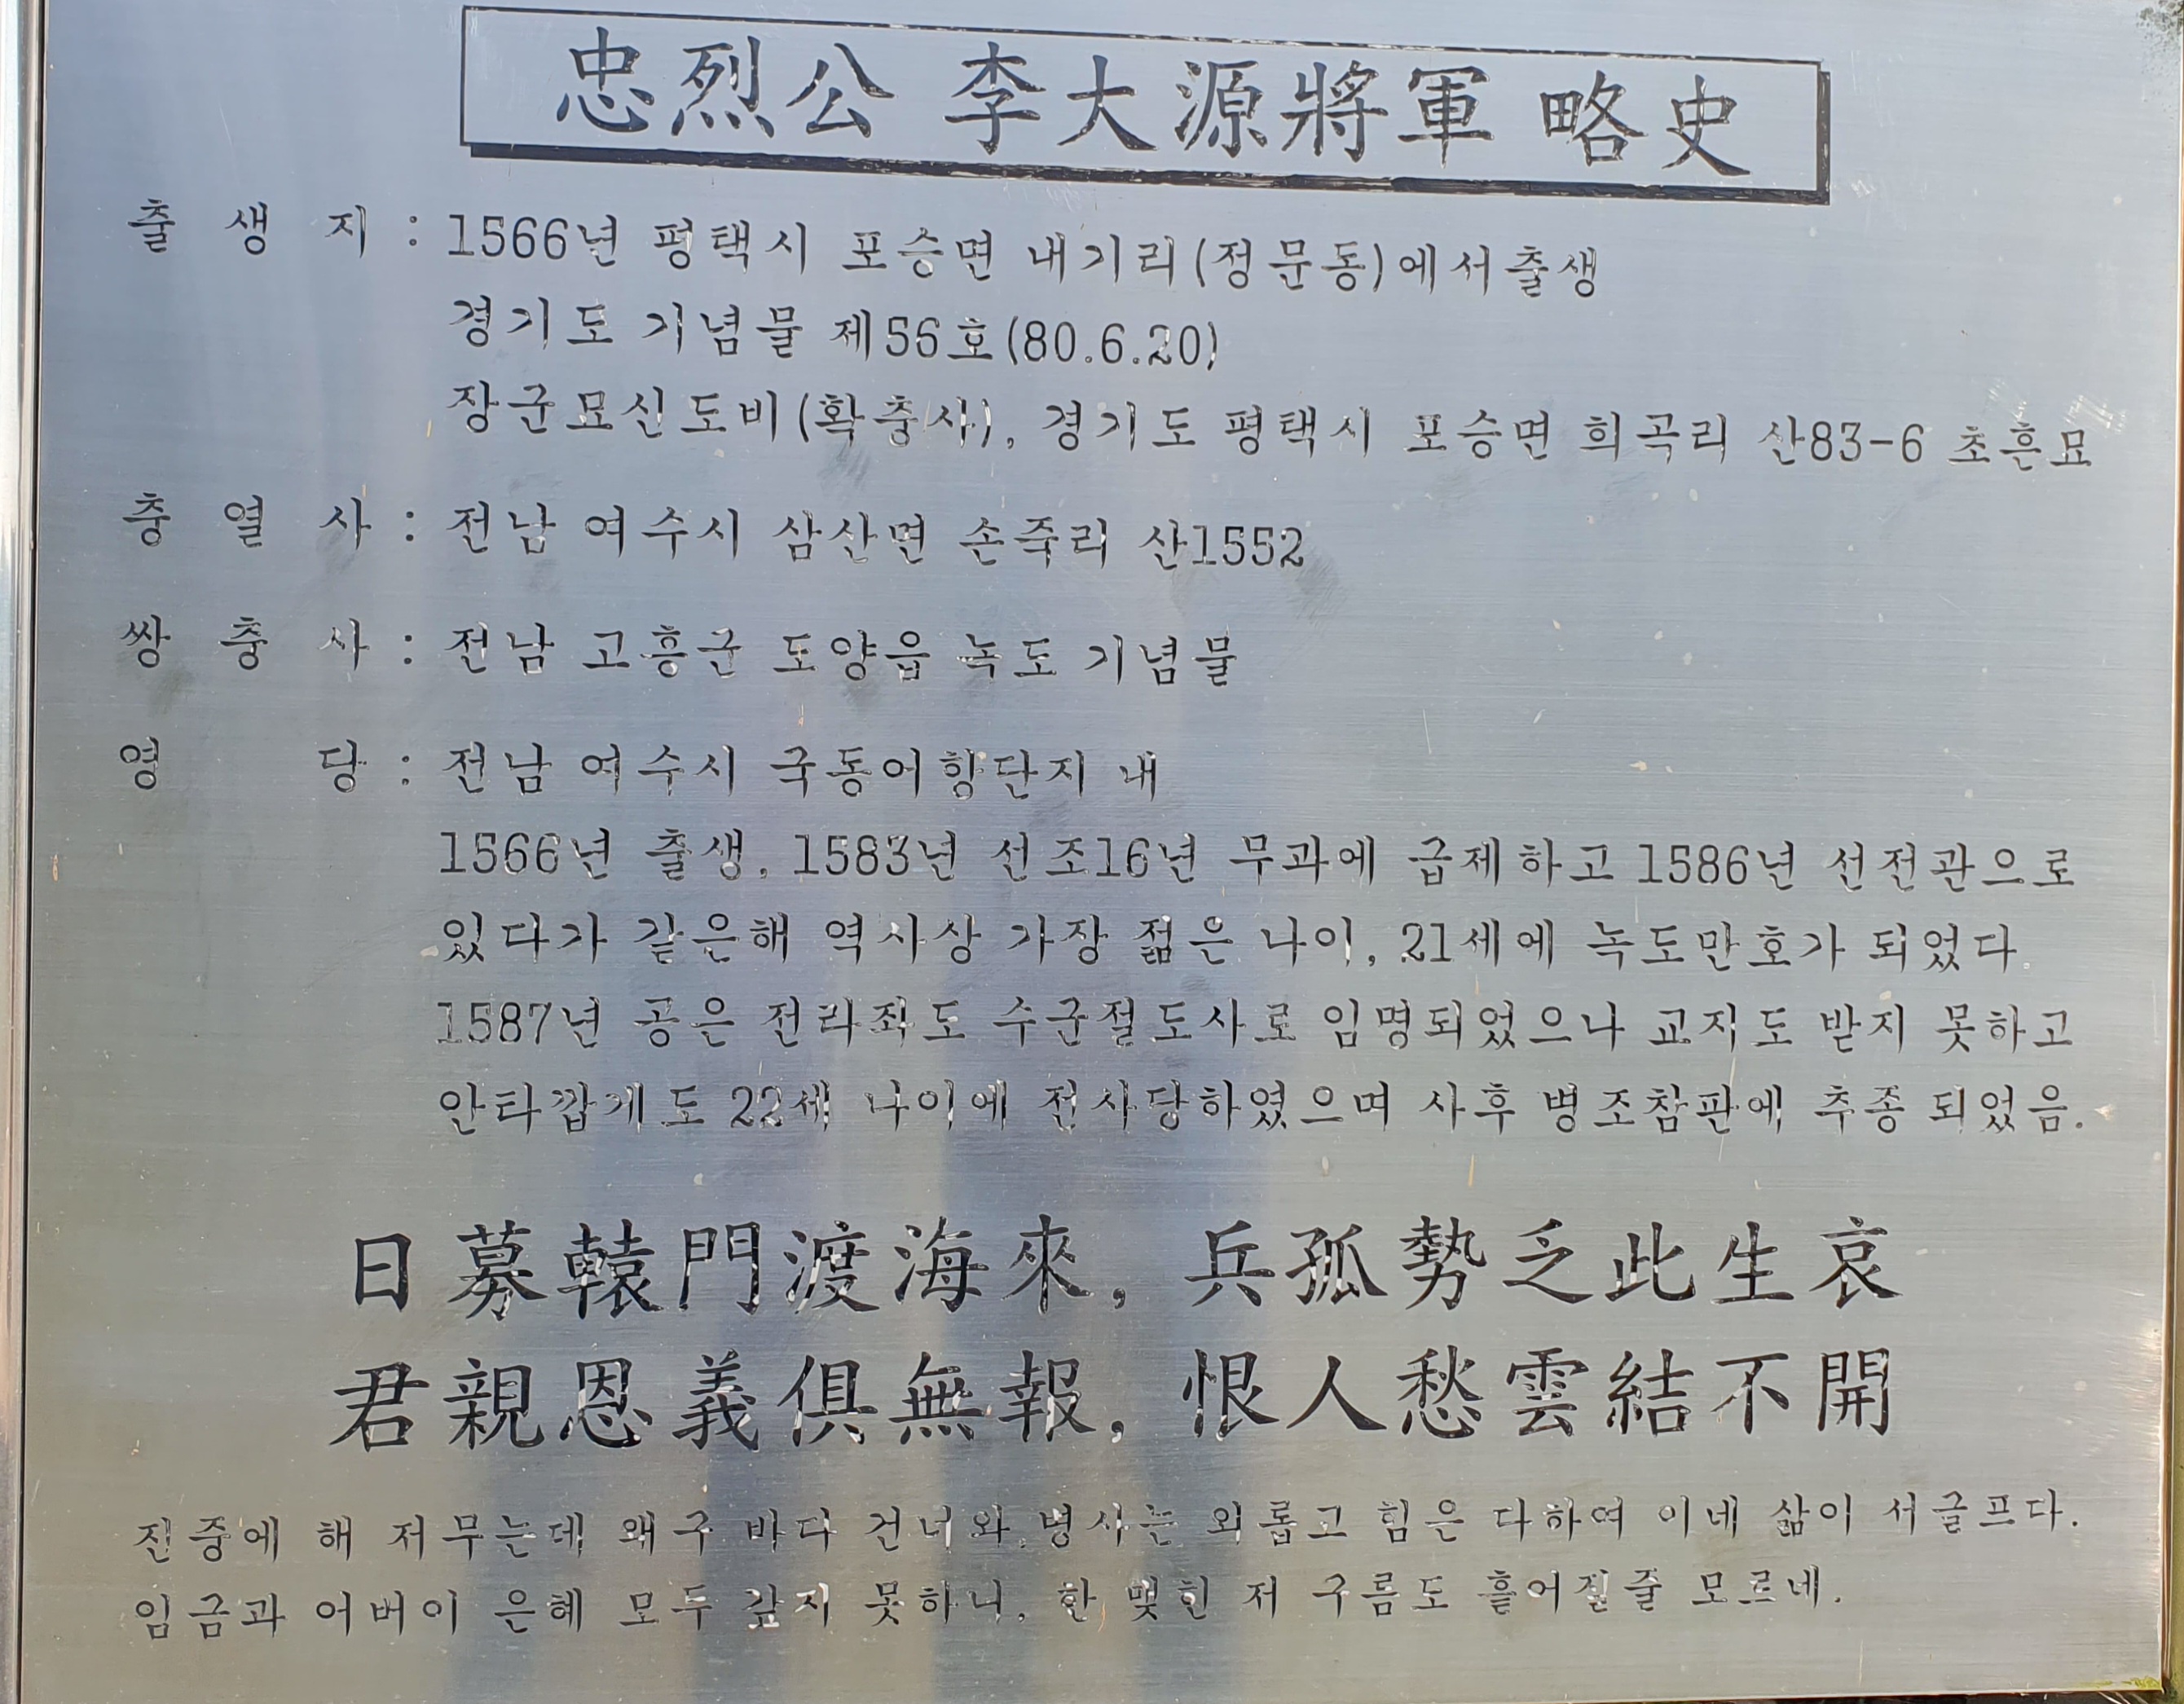 忠烈公 李大源將軍 略史
출 생 지 : 1566년 평택시 포승면 내기리(정문동)에서출생
경기도 기념물 제56호(80.6.20)
장군묘신도비(확충사), 경기도 평택시 포승면 희곡리 산83-6 초혼묘
충 열 사 : 전남 여수시 삼산면 손죽리 산1552
쌍 충 사 : 전남 고흥군 도양읍 녹도 기념물
영 당 : 전남 여수시 국동어항단지 내
1566년 출생, 1583년 선조16년 무과에 급제하고 1586년 선전관으로
있다가 같은해 역사상 가장 젊은 나이, 21세에 녹도만호가 되었다.
1587년 공은 전라좌도 수군절도사로 임명되었으나 교지도 받지 못하고
안타깝게도 22세 나이에 전사당하였으며 사후 병조참판에 추종 되었음.
日募轅門渡海來, 兵孤勢乏此生哀
君親恩義俱無報, 恨人愁雲結不開
진중에 해 저무는데 왜구 바다 건너와, 병사는 외롭고 힘은 다하여 이네 삶이 서글프다.
임금과 어버이 은혜 모두 갚지 못하니, 한 맺힌 저 구름도 흩어질줄 모르네.